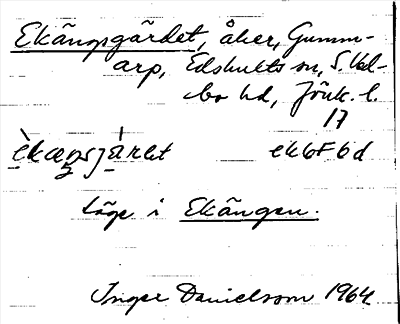 Ekängsgärdet, åker, Gumm-
arp, Edshults sn, S. Ved-
bo hd, Jönk. l.
17
ek6F6d
läge i Ekängen.
Inger Danielsson 1964